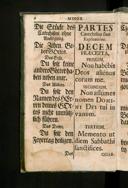 MINOR
Die Stücke des
Catechismi ohne
Auslegung.
Die Zehen Ge-
Das Erste.
Du solt keine
neben mir.
Das Ander.
Du solt den
Namen des HErrn
nicht
führen.
Das Dritte.
Du solt den
Feyertag heiligen.
PARTES
Catechismi sine
Explicatione.
DECEM
PRÆCEPTA,
PRIMUM.
Non habebis
Deos alienos
coram me.
SECUNDUM.
Non assumes
nomen Domi-
ni Dei tui in
vanum.
TERTIUM.
Memento ut
diem Sabbathi
sanctifices.